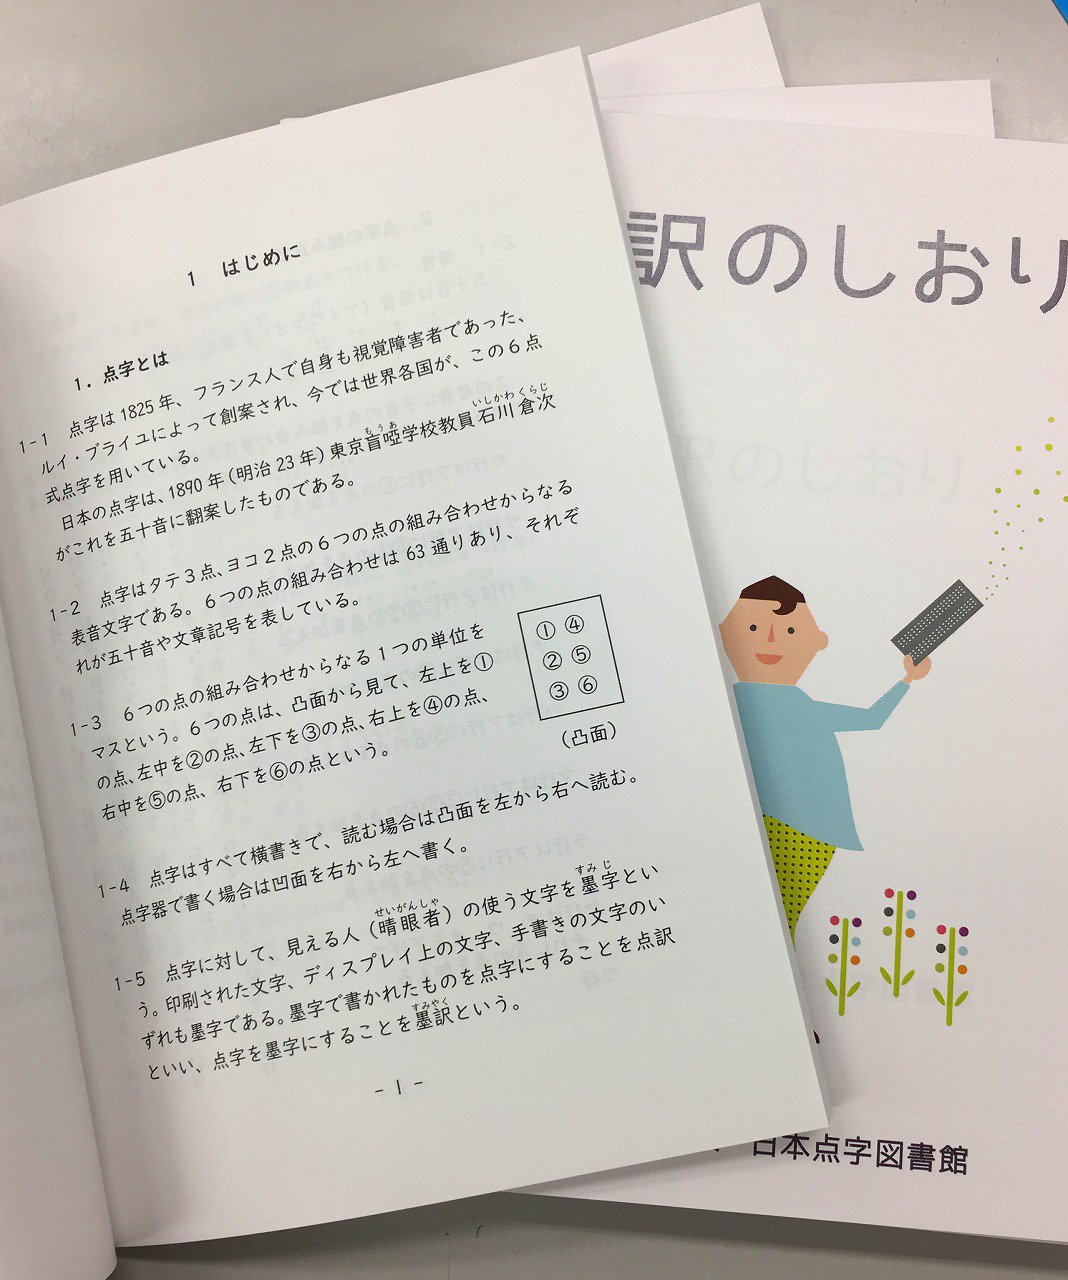 1 はじめに
1. 点字とは
1-1 点字は1825年、フランス人で自身も視覚障害者であった、
ルイ・ブライユによって創案され、今では世界各国が、この6点
式点字を用いている。
日本の点字は、1890年(明治23年)東京盲啞学校教員石川倉次
もうあ
いしかわくらじ
がこれを五十音に翻案したものである。
1-2 点字はタテ3点、ヨコ2点の6つの点の組み合わせからなる
表音文字である。6つの点の組み合わせは63通りあり、それぞ
れが五十音や文章記号を表している。
1-3 6つの点の組み合わせからなる1つの単位を
マスという。6つの点は、凸面から見て、左上を①
の点、左中を②の点、左下を③の点、右上を④の点、
右中を⑤の点、右下を⑥の点という。
①④
②⑤
③⑥
(凸面)
1-4 点字はすべて横書きで、読む場合は凸面を左から右へ読む。
点字器で書く場合は凹面を右から左へ書く。
1-5 点字に対して、見える人(晴眼者)の使う文字を墨字とい
せいがんしゃ
すみじ
う。印刷された文字、ディスプレイ上の文字、手書きの文字のい
ずれも墨字である。墨字で書かれたものを点字にすることを点訳
といい、点字を墨字にすることを墨訳という。
すみやく
-1-
訳のしおり
訳のしおり
日本点字図書館